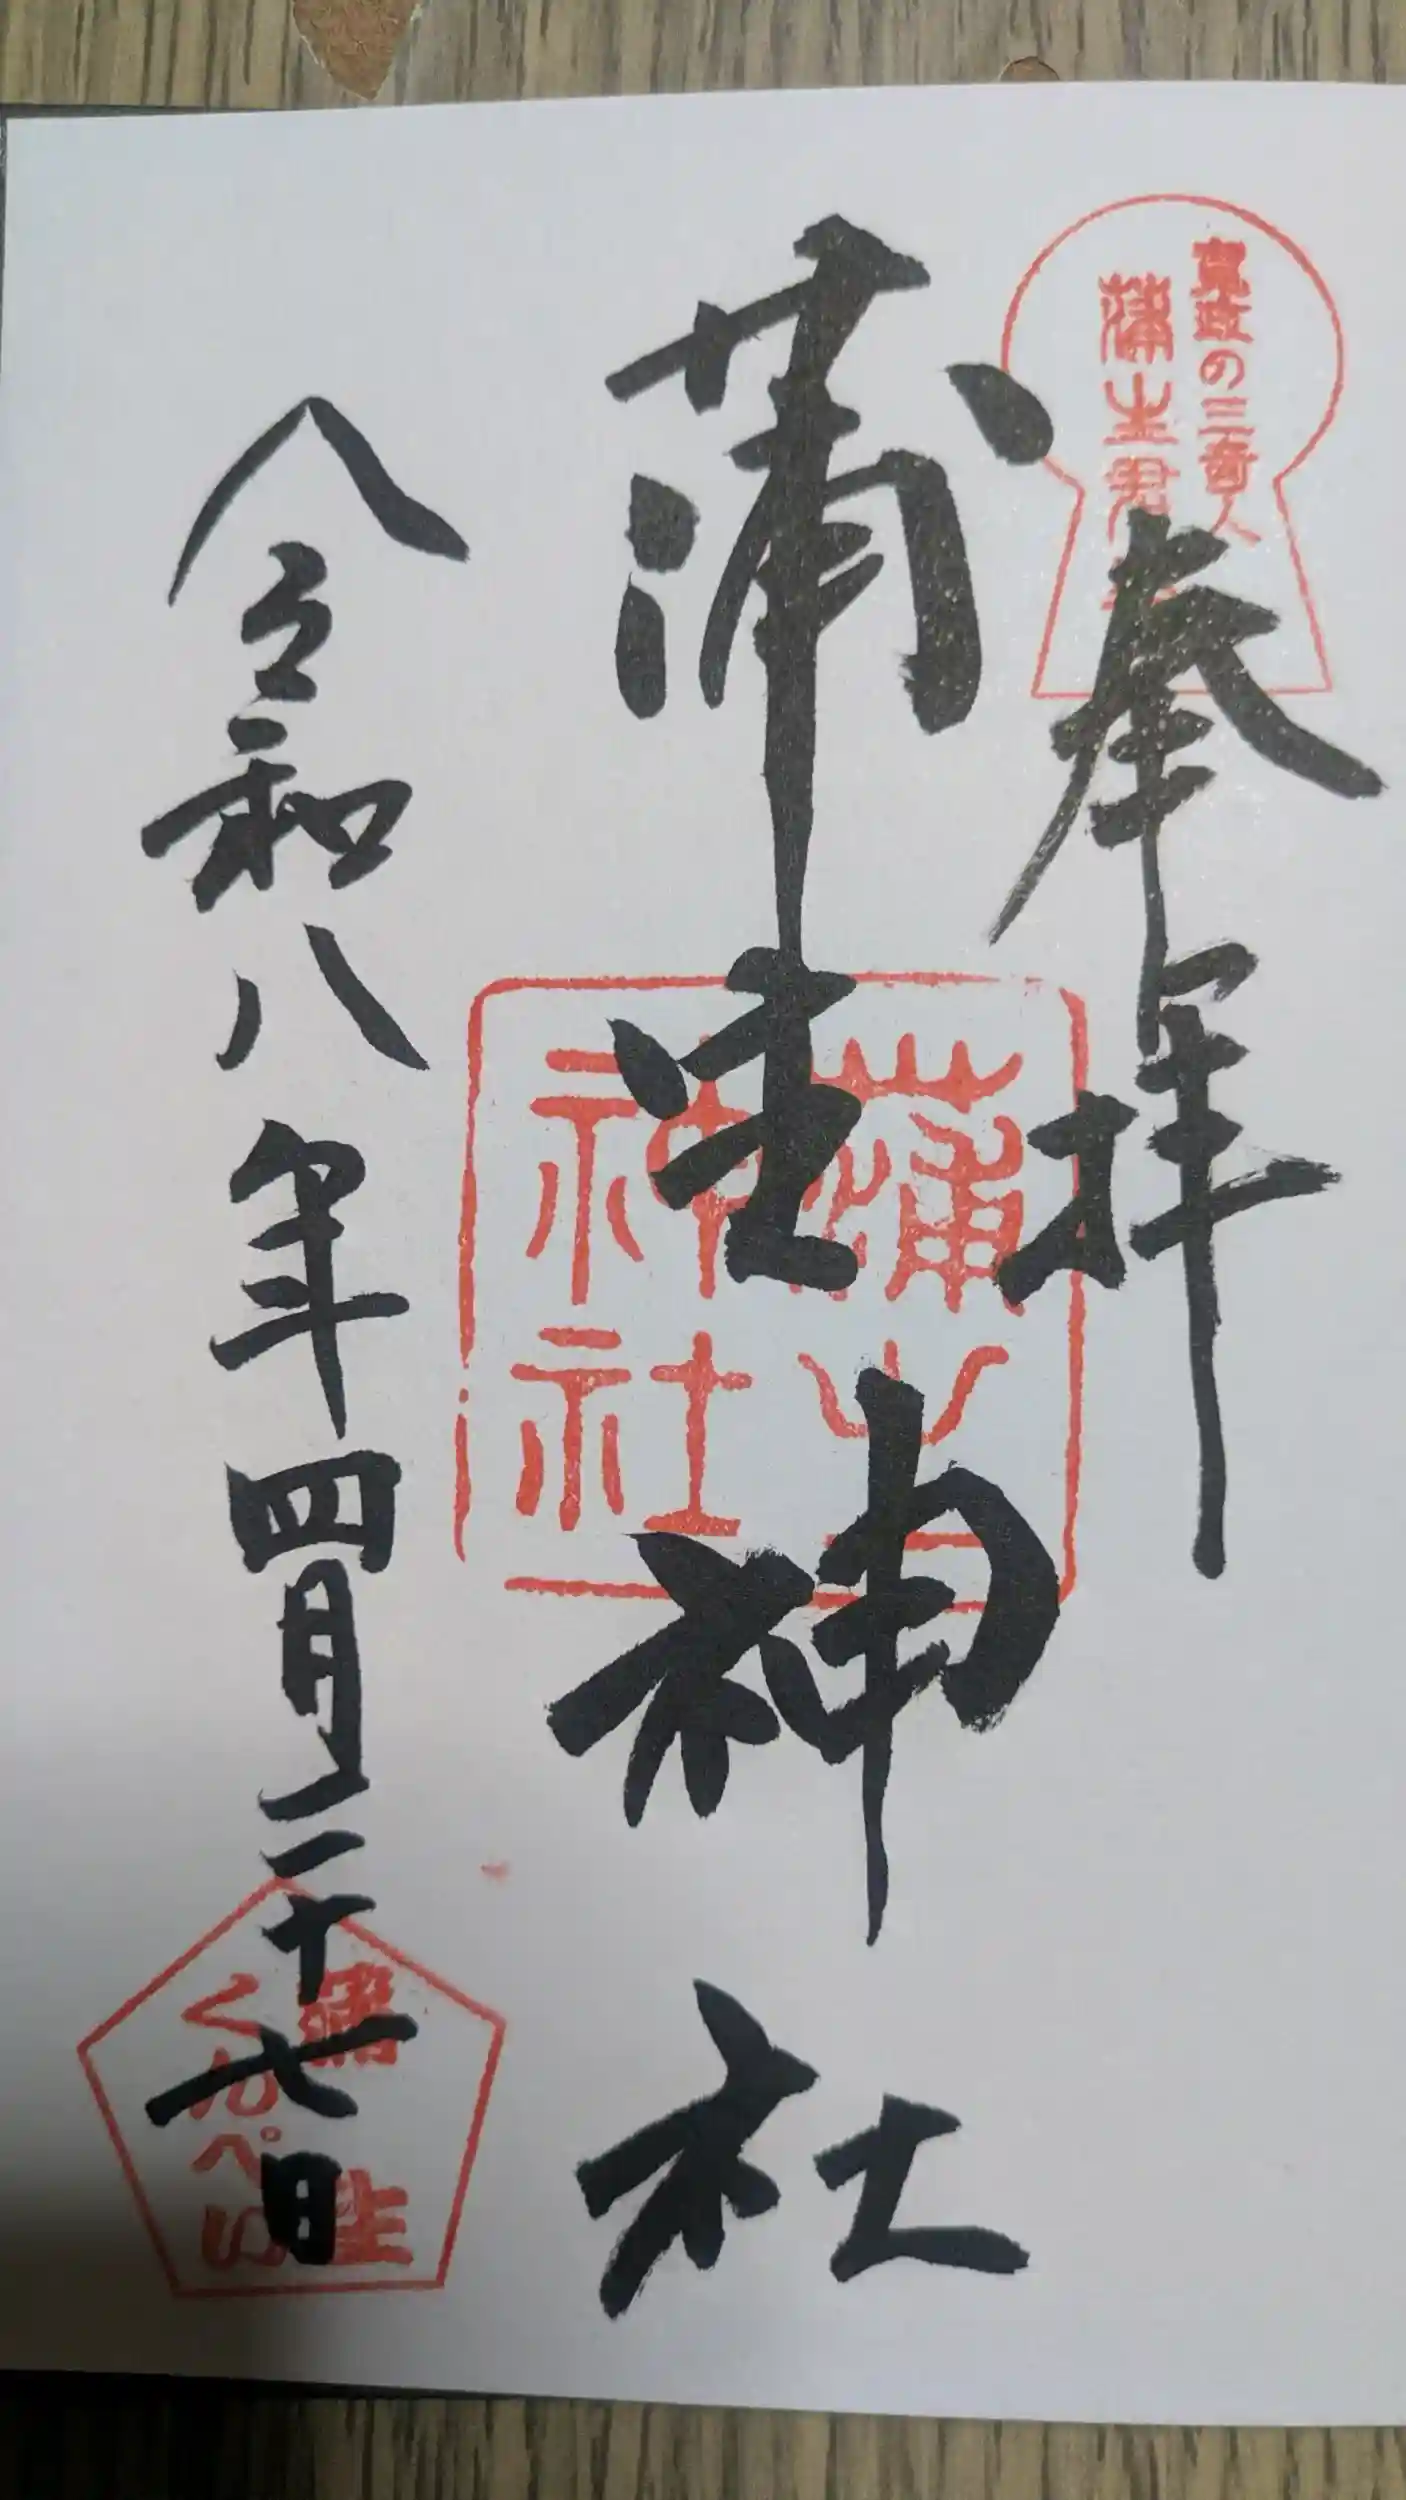 寛政の三奇人
蒲生君
奉拝
蒲生神社
蒲生
神社
令和八年四月二十七日
蒲生
くんぺい